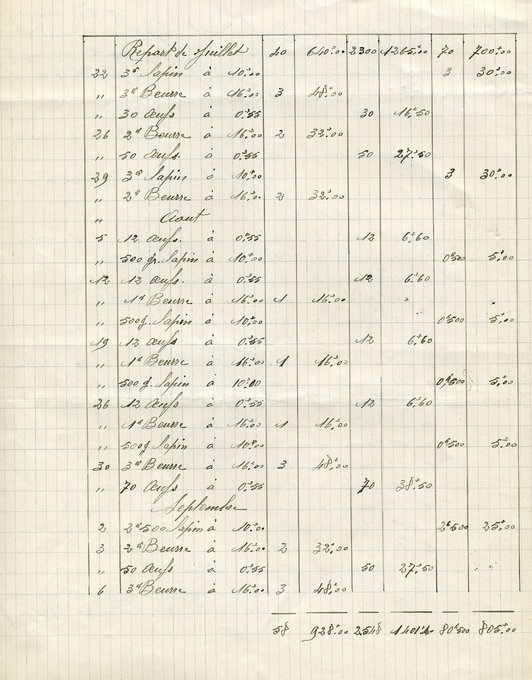 Report de Juillet 40 640.00 2300 1265.00 70 700.00
22 3k Lapin à 10f.00 3 30f.00
" 3k Beurre à 16f.00 3 48f.00
" 30 Œufs à 0f.55 30 16f.50
26 2k Beurre à 16f.00 2 32f.00
" 50 Œufs à 0f.55 50 27f.50
29 3k Lapin à 10f.00 3 30f.00
" 2k Beurre à 16f.00 2 32f.00
" Aout
5 12 Œufs à 0f.55 12 6f.60
" 500 gr. Lapin à 10f.00 0k500 5f.00
12 12 Œufs à 0f.55 12 6f.60
" 1k Beurre à 16f.00 1 16f.00 " "
" 500g. Lapin à 10f.00 0k500 5f.00
19 12 Œufs à 0f.55 12 6f.60
" 1k Beurre à 16f.00 1 16f.00
" 500 g. Lapin à 10f00 0k500 5f.00
26 12 Œufs à 0f.55 12 6f.60
" 1k Beurre à 16f.00 1 16f.00
" 500g Lapin à 10f.00 0k500 5f.00
30 3k Beurre à 16f.00 3 48f.00
" 70 Œufs à 0f.55 70 38f.50
Septembre
2 2k500 Lapin à 10f.00 2k500 25f.00
3 2k Beurre à 16f.00 2 32f.00
" 50 Œufs à 0f.55 50 27f.50 " "
6 3k Beurre à 16f.00 3 48f.00
58 928f.00 2548 80k500 805f.00